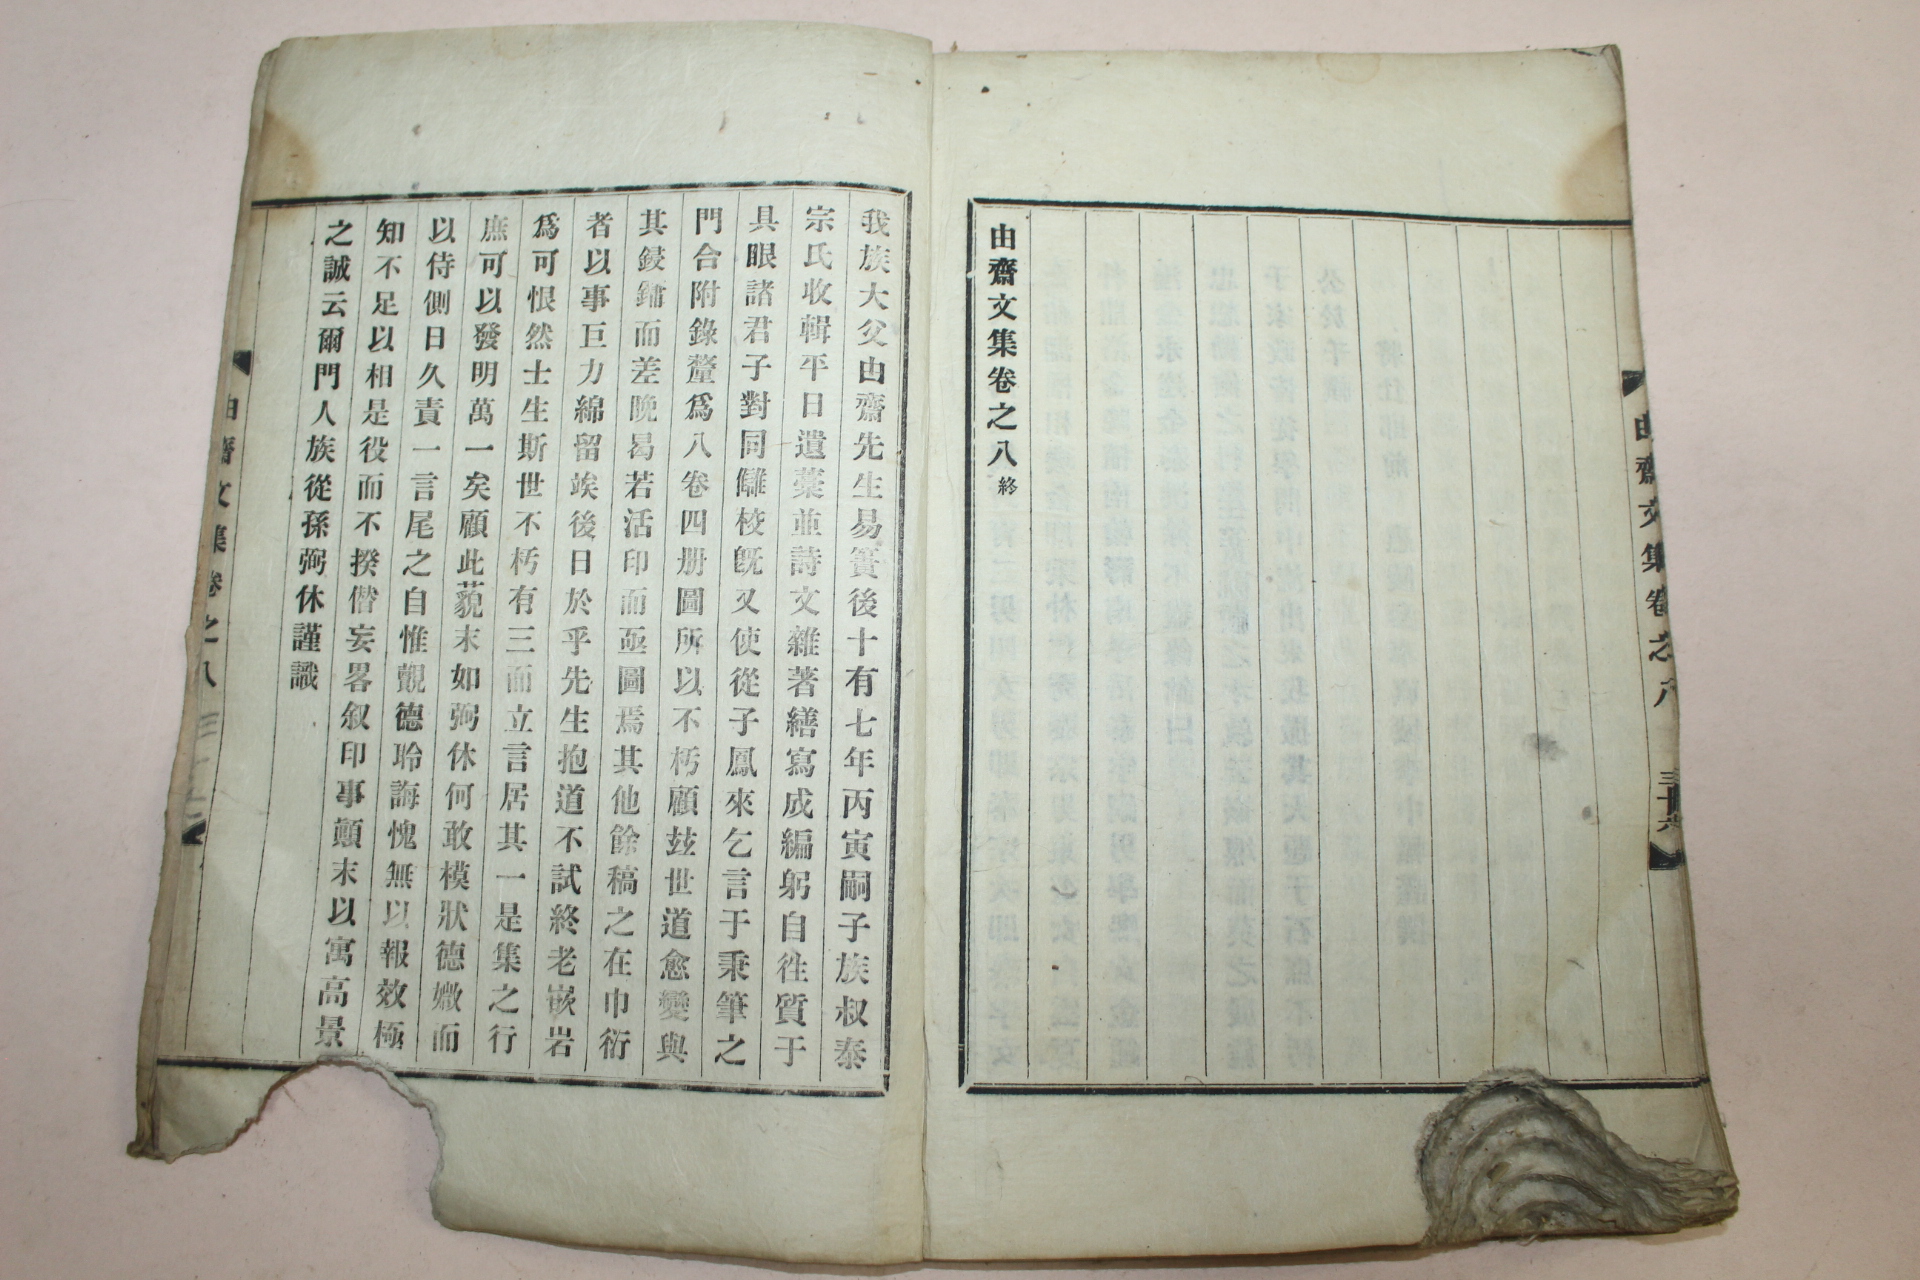 由齋文集卷之八
三十六
由齋文集卷之八 終
我族大父由齋先生易簀後十有七年丙寅嗣子族叔泰
宗氏收輯平日遺藁並詩文雜著繕寫成編躬自徃質于
具眼諸君子對同讎校旣又使從子鳳來乞言于秉筆之
門合附錄釐爲八卷四册圖所以不朽顧玆世道愈變與
其鋟鏽而差晩曷若活印而亟圖焉其他餘稿之在巾衍
者以事巨力綿留竢後日於乎先生抱道不試終老嵌岩
爲可恨然士生斯世不朽有三而立言居其一是集之行
庶可以發明萬一矣顧此藐末如弼休何敢模狀德媺而
以侍側日久責一言尾之自惟覿德聆誨愧無以報效極
知不足以相是役而不揆僭妄畧叙印事顚末以寓高景
之誠云爾門人族從孫弼休謹識
由齋文集卷之八